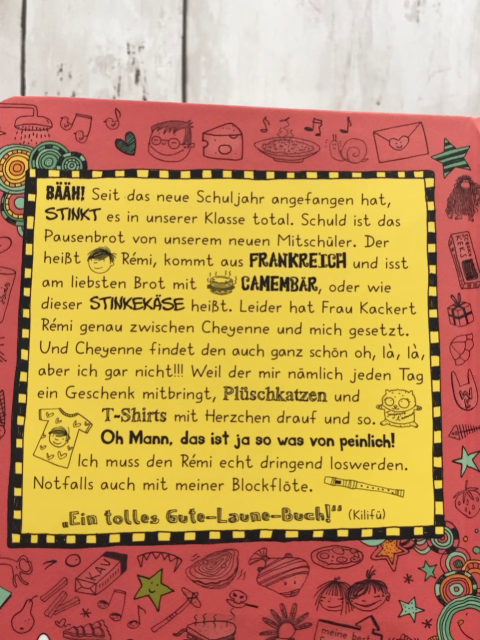 BÄÄH! Seit das neue Schuljahr angefangen hat,
STINKT es in unserer Klasse total. Schuld ist das
Pausenbrot von unserem neuen Mitschüler. Der
heißt Rémi, kommt aus FRANKREICH und isst
am liebsten Brot mit CAMEMBÄR, oder wie
dieser STINKEKÄSE heißt. Leider hat Frau Kackert
Rémi genau zwischen Cheyenne und mich gesetzt.
Und Cheyenne findet den auch ganz schön oh, là, là,
aber ich gar nicht!!! Weil der mir nämlich jeden Tag
ein Geschenk mitbringt, Plüschkatzen und
T-Shirts mit Herzchen drauf und so.
Oh Mann, das ist ja so was von peinlich!
Ich muss den Rémi echt dringend loswerden.
Notfalls auch mit meiner Blockflöte.
„Ein tolles Gute-Laune-Buch!" (Kilifü)
KAU
meine